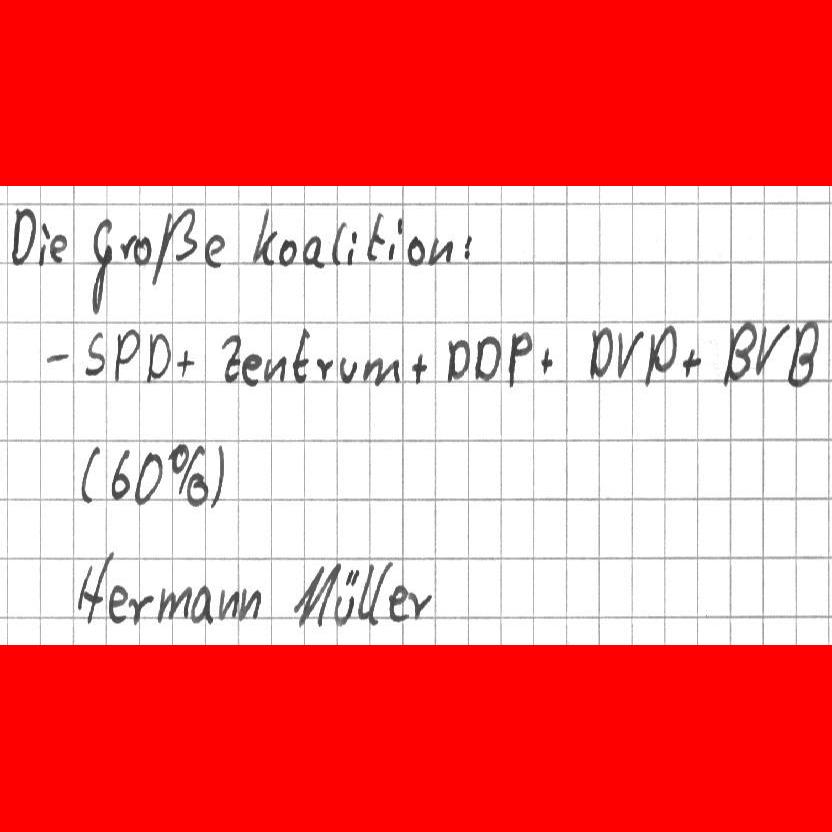 Die große koalition:
- SPD + Zentrum + DDP + DVP + BVB
(60%)
Hermann Müller